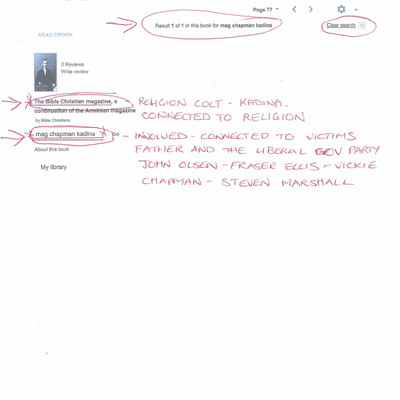 Page 77
Result 1 of 1 in this book for mag chapman kadina
Clear search
READ EBOOK
0 Reviews
Write review
The Bible Christian magazine, a
continuation of the Arminian magazine
by Bible Christians
- RELIGION COLT - KADINA.
CONNECTED TO RELIGION
mag chapman kadina
Go
- INVOLVED - CONNECTED TO VICTIMS
FATHER AND THE LIBERAL GOV PARTY
JOHN OLSEN - FRASER ELLIS - VICKIE
CHAPMAN - STEVEN MARSHALL
About this book
My library